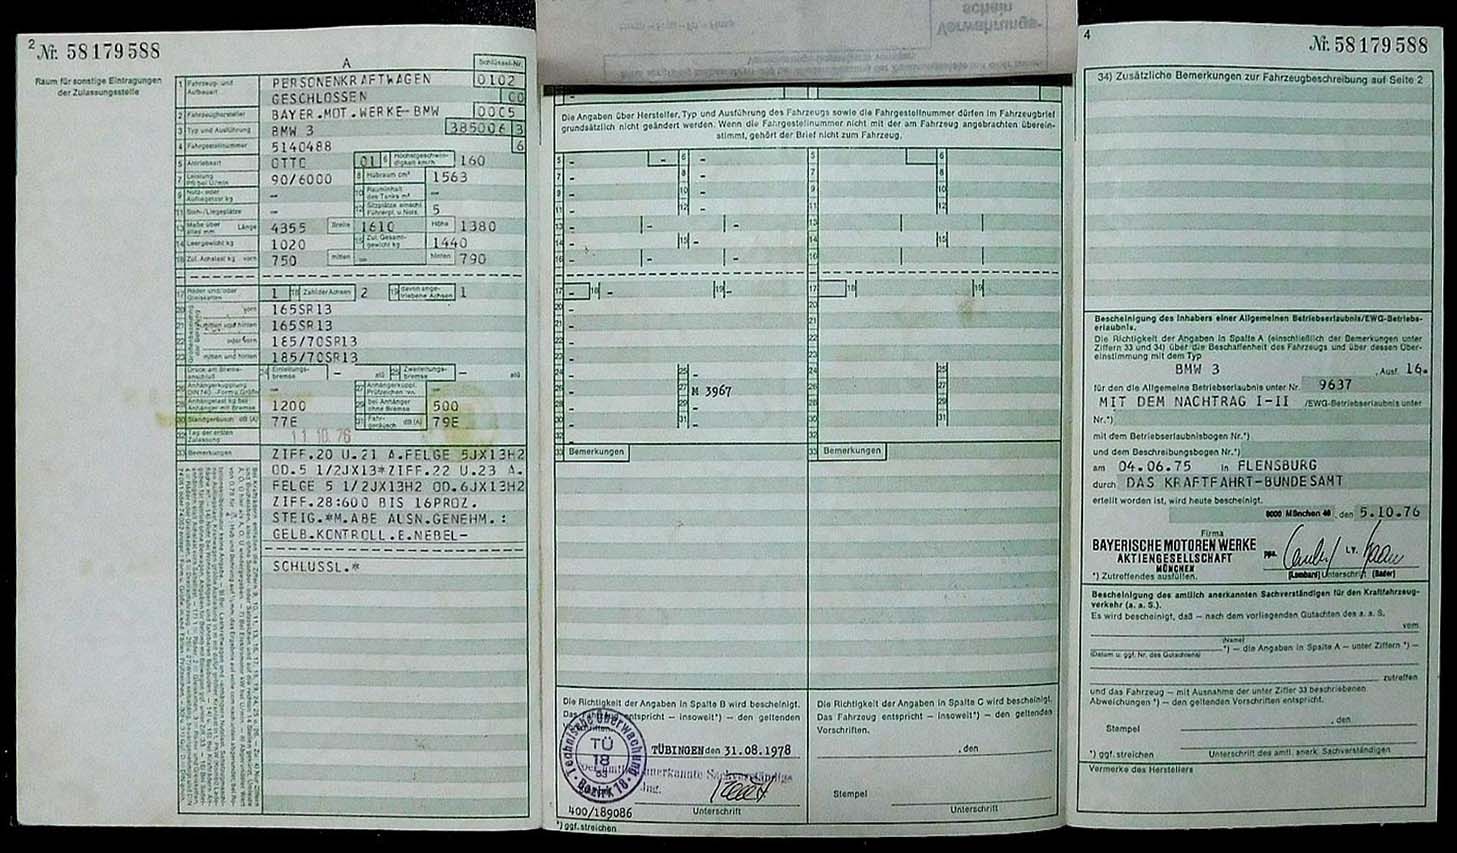 2 Nr. 58179588
Raum für sonstige Eintragungen
der Zulassungsstelle
A
Schlüssel-Nr.
1 Fahrzeug- und Aufbauart PERSONENKRAFTWAGEN 0102
GESCHLOSSEN 00
2 Fahrzeughersteller BAYER.MOT.WERKE-BMW 0005
3 Typ und Ausführung BMW 3 385006 3
4 Fahrgestellnummer 5140488 6
5 Antriebsart OTTO 01 6 Höchstgeschwindigkeit km/h 160
7 Leistung PS bei U/min 90/6000 8 Hubraum cm³ 1563
9 Nutz- oder Aufliegelast kg – 10 Rauminhalt des Tanks m³ –
11 Steh-/Liegeplätze – 12 Sitzplätze einschl. Führerpl. u. Nots. 5
13 Maße über alles mm Länge 4355 Breite 1610 Höhe 1380
14 Leergewicht kg 1020 15 Zul. Gesamtgewicht kg 1440
16 Zul. Achslast kg vorn 750 mitten – hinten 790
17 Räder und/oder Gleisketten 1 18 Zahl der Achsen 2 19 davon angetriebene Achsen 1
20 vorn 165SR13
21 mitten und hinten 165SR13
22 oder vorn 185/70SR13
23 mitten und hinten 185/70SR13
Einleitungsbremse – Zweileitungsbremse –
Anhängerkupplung – 27 Anhängerkuppl. Prüfzeichen –
28 Anhängelast kg bei Anhänger mit Bremse 1200 29 bei Anhänger ohne Bremse 500
30 Standgeräusch dB (A) 77E 31 Fahrgeräusch dB (A) 79E
32 Tag der ersten Zulassung 11.10.76
33 Bemerkungen ZIFF.20 U.21 A.FELGE 5JX13H2
OD.5 1/2JX13*ZIFF.22 U.23 A.
FELGE 5 1/2JX13H2 OD.6JX13H2
ZIFF.28:600 BIS 16PROZ.
STEIG.*M.ABE AUSN.GENEHM.:
GELB.KONTROLL.E.NEBEL-
SCHLUSSL.*
schein
Verwahrungs-
Die Angaben über Hersteller, Typ und Ausführung des Fahrzeugs sowie die Fahrgestellnummer dürfen im Fahrzeugbrief
grundsätzlich nicht geändert werden. Wenn die Fahrgestellnummer nicht mit der am Fahrzeug angebrachten überein-
stimmt, gehört der Brief nicht zum Fahrzeug.
5 – – 6 – 5 6
7 – 8 – 7 8
9 – 10 – 9 10
11 – 12 – 11 12
13 – – 13
14 – 15 – 14 15
16 – – 16
17 18 – 19 – 17 18 19
27 M 3967
33 Bemerkungen
33 Bemerkungen
Die Richtigkeit der Angaben in Spalte B wird bescheinigt.
Das Fahrzeug entspricht – insoweit*) – den geltenden
Technische Überwachung
TÜ
18
83
Bezirk 18
TÜBINGEN den 31.08.1978
Der amtlich anerkannte Sachverständige
Ing.
400/189086
Unterschrift
*) ggf. streichen
Die Richtigkeit der Angaben in Spalte C wird bescheinigt.
Das Fahrzeug entspricht – insoweit*) – den geltenden
Vorschriften.
, den
Stempel
Unterschrift
4
Nr. 58179588
34) Zusätzliche Bemerkungen zur Fahrzeugbeschreibung auf Seite 2
Bescheinigung des Inhabers einer Allgemeinen Betriebserlaubnis/EWG-Betriebs-
erlaubnis.
Die Richtigkeit der Angaben in Spalte A (einschließlich der Bemerkungen unter
Ziffern 33 und 34) über die Beschaffenheit des Fahrzeugs und über dessen Über-
einstimmung mit dem Typ
BMW 3 , Ausf. 16.
für den die Allgemeine Betriebserlaubnis unter Nr. 9637
MIT DEM NACHTRAG I-II /EWG-Betriebserlaubnis unter
Nr.*)
mit dem Betriebserlaubnisbogen Nr.*)
und dem Beschreibungsbogen Nr.*)
am 04.06.75 in FLENSBURG
durch DAS KRAFTFAHRT-BUNDESAMT
erteilt worden ist, wird heute bescheinigt.
8000 München 40 , den 5.10.76
Firma
BAYERISCHE MOTOREN WERKE
AKTIENGESELLSCHAFT
MÜNCHEN
ppa. i.V.
*) Zutreffendes ausfüllen. (Lambard) Unterschrift (Bader)
Bescheinigung des amtlich anerkannten Sachverständigen für den Kraftfahrzeug-
verkehr (a. a. S.).
Es wird bescheinigt, daß – nach dem vorliegenden Gutachten des a. a. S.
vom
(Name)
*) – die Angaben in Spalte A – unter Ziffern *) –
(Datum u. ggf. Nr. des Gutachtens)
zutreffen
und das Fahrzeug – mit Ausnahme der unter Ziffer 33 beschriebenen
Abweichungen *) – den geltenden Vorschriften entspricht.
, den
Stempel
*) ggf. streichen Unterschrift des amtl. anerk. Sachverständigen
Vermerke des Herstellers